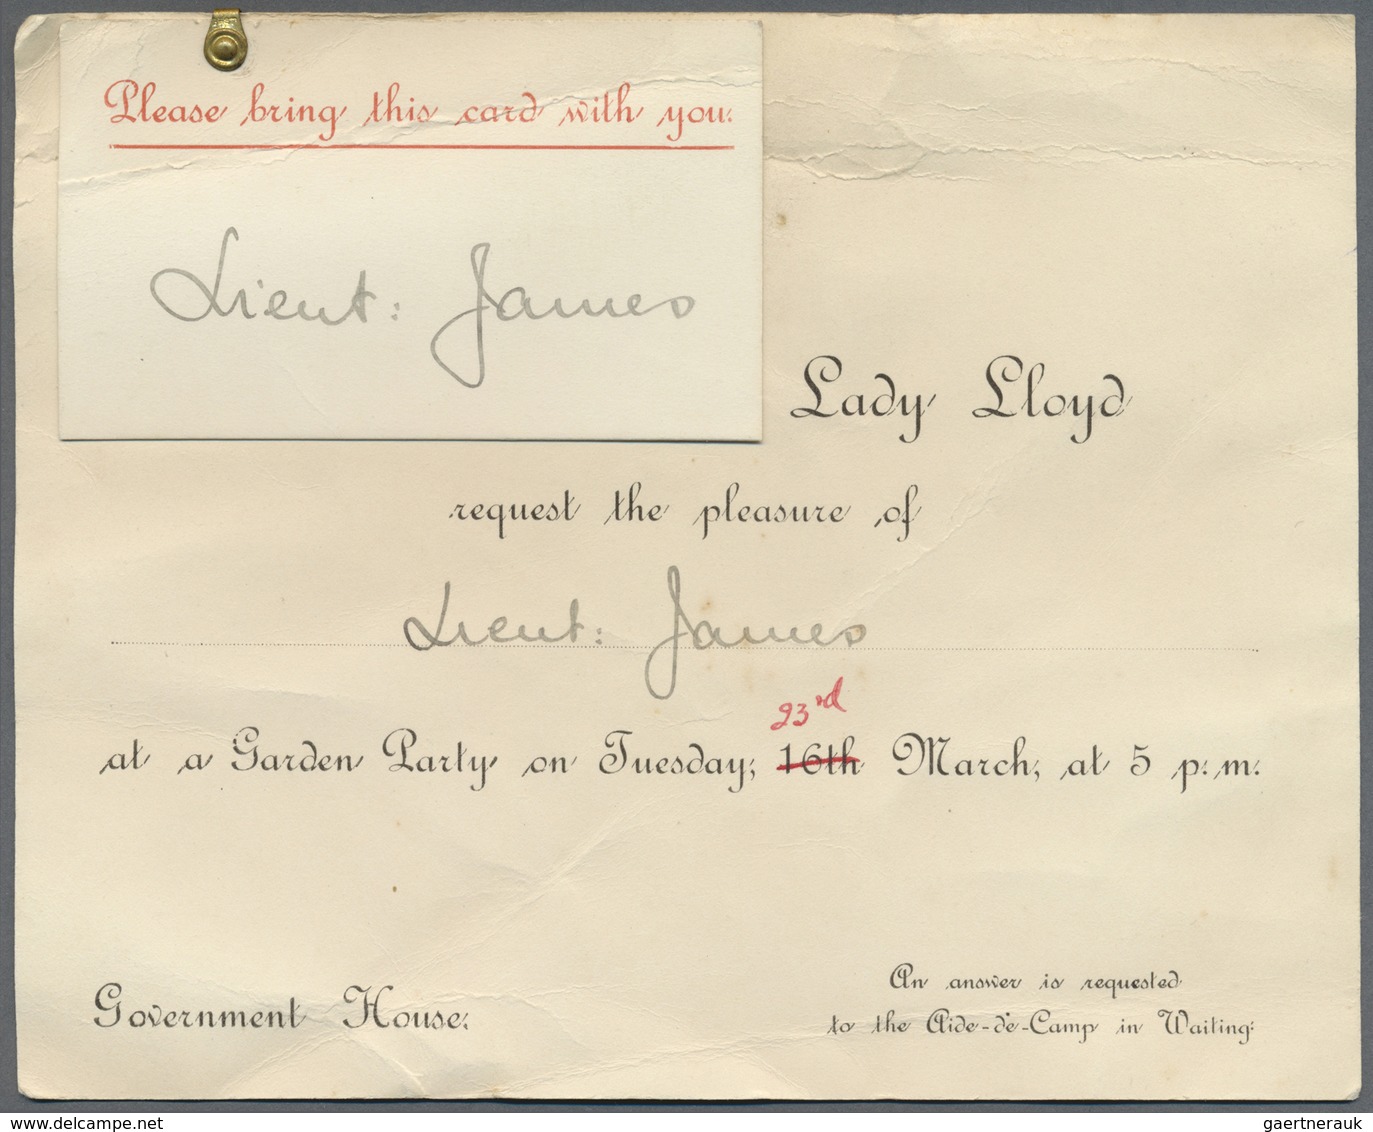 Please bring this card with you.
Lieut: James
Lady Lloyd
request the pleasure of
Lieut: James
23rd
at a Garden Party on Tuesday, 16th March, at 5 p.m.
Government House.
An answer is requested
to the Aide-de-Camp in Waiting.
www.delcampe.net
gaertnerauk